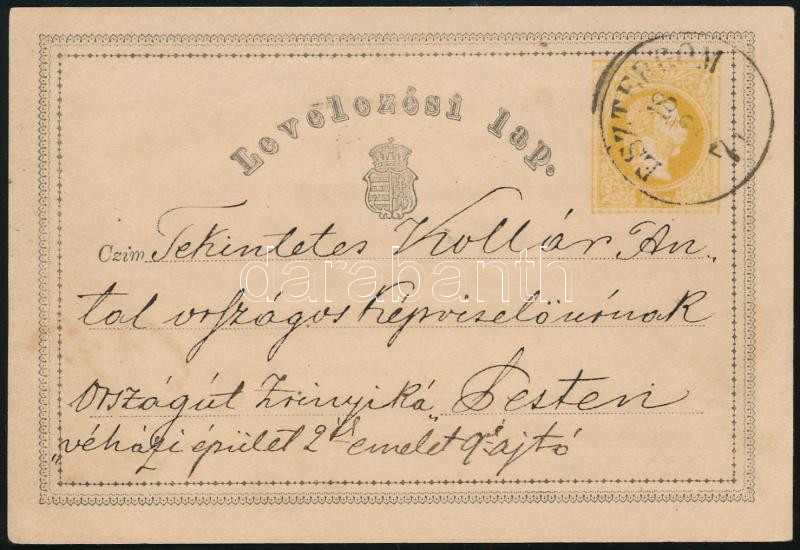 Levelezési lap.
ESZTERGOM
71
Czim Tekintetes Kollár An-
tal országos képviselő úrnak
Országút Zrinyi
Pesten
épület 2 emelet 9 ajtó
darabanth